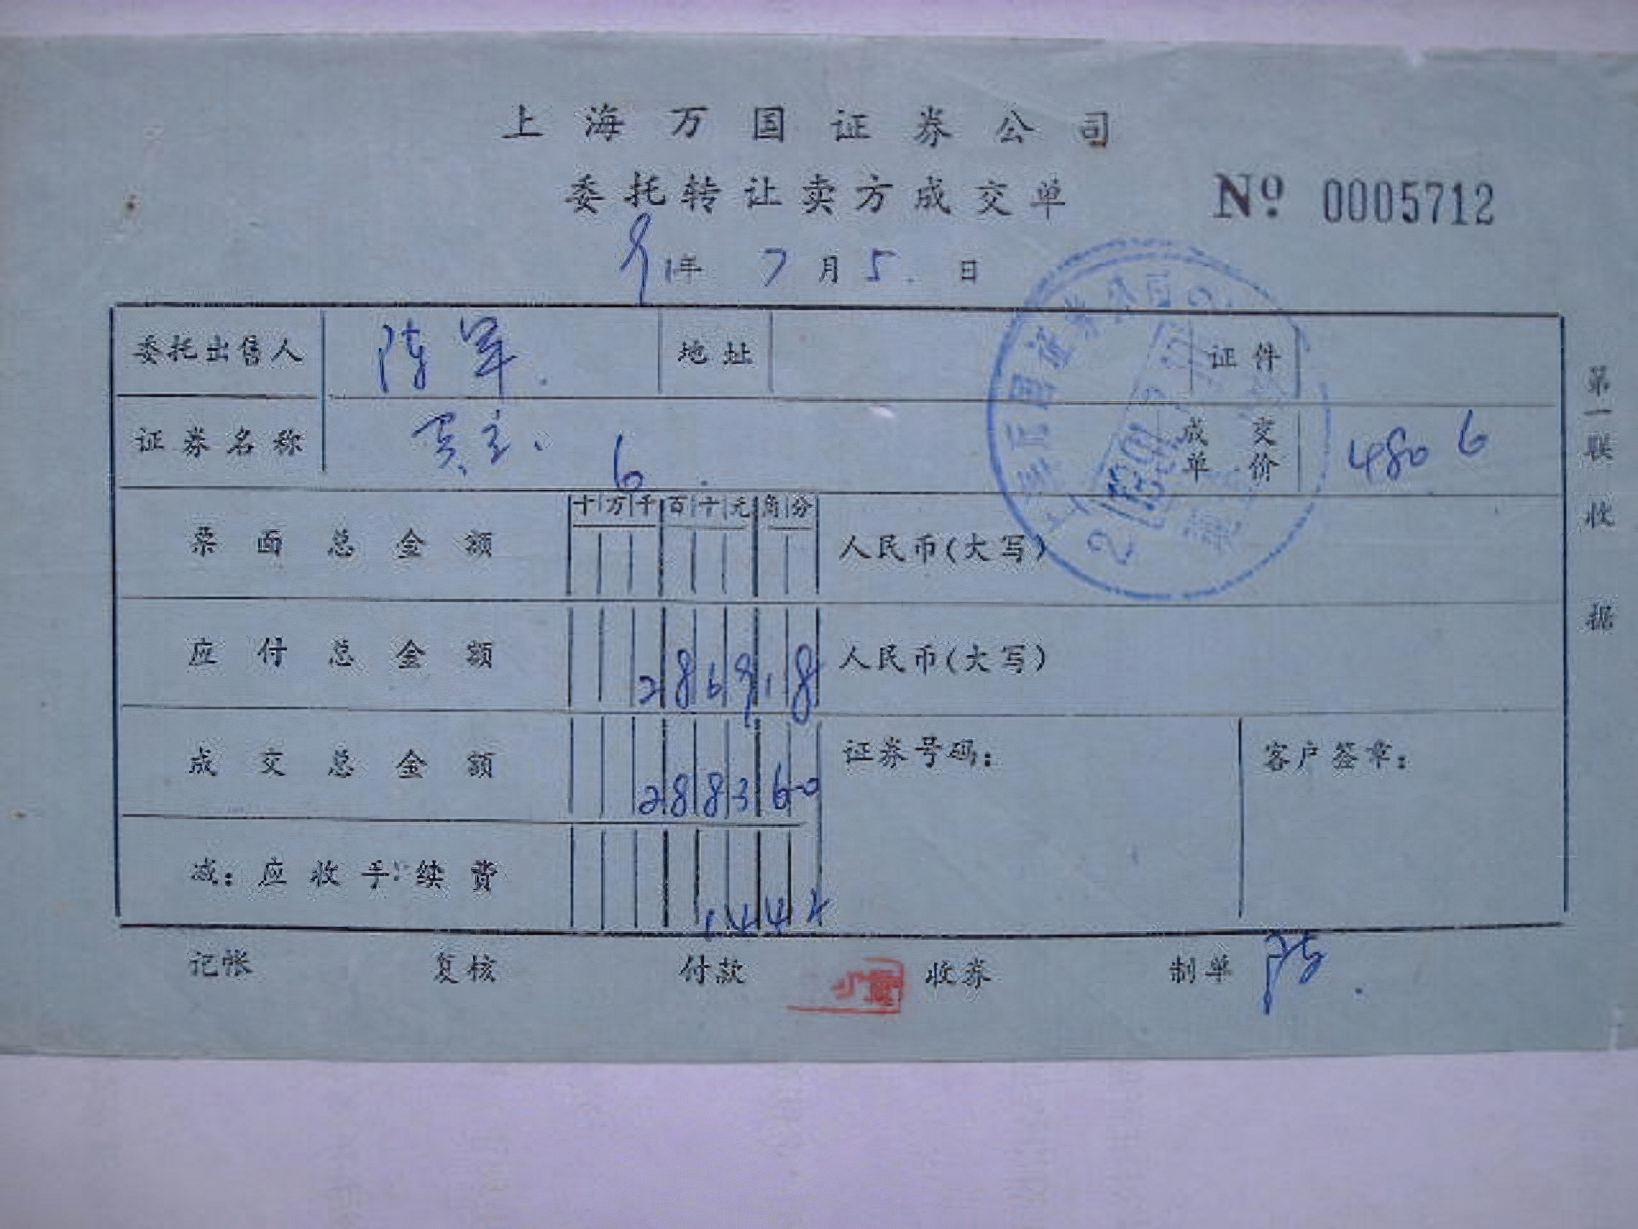 上海万国证券公司
委托转让卖方成交单 Nº 0005712
91年 7月5.日
委托出售人 陈军. 地址 证件
证券名称 6. 成交单价 480 6
十万千百十元角分
票面总金额 人民币(大写)
应付总金额 2869 18 人民币(大写)
成交总金额 2883 60 证券号码: 客户签章:
减:应收手续费 14 42
记帐 复核 付款 收券 制单 陈.
第一联 收据